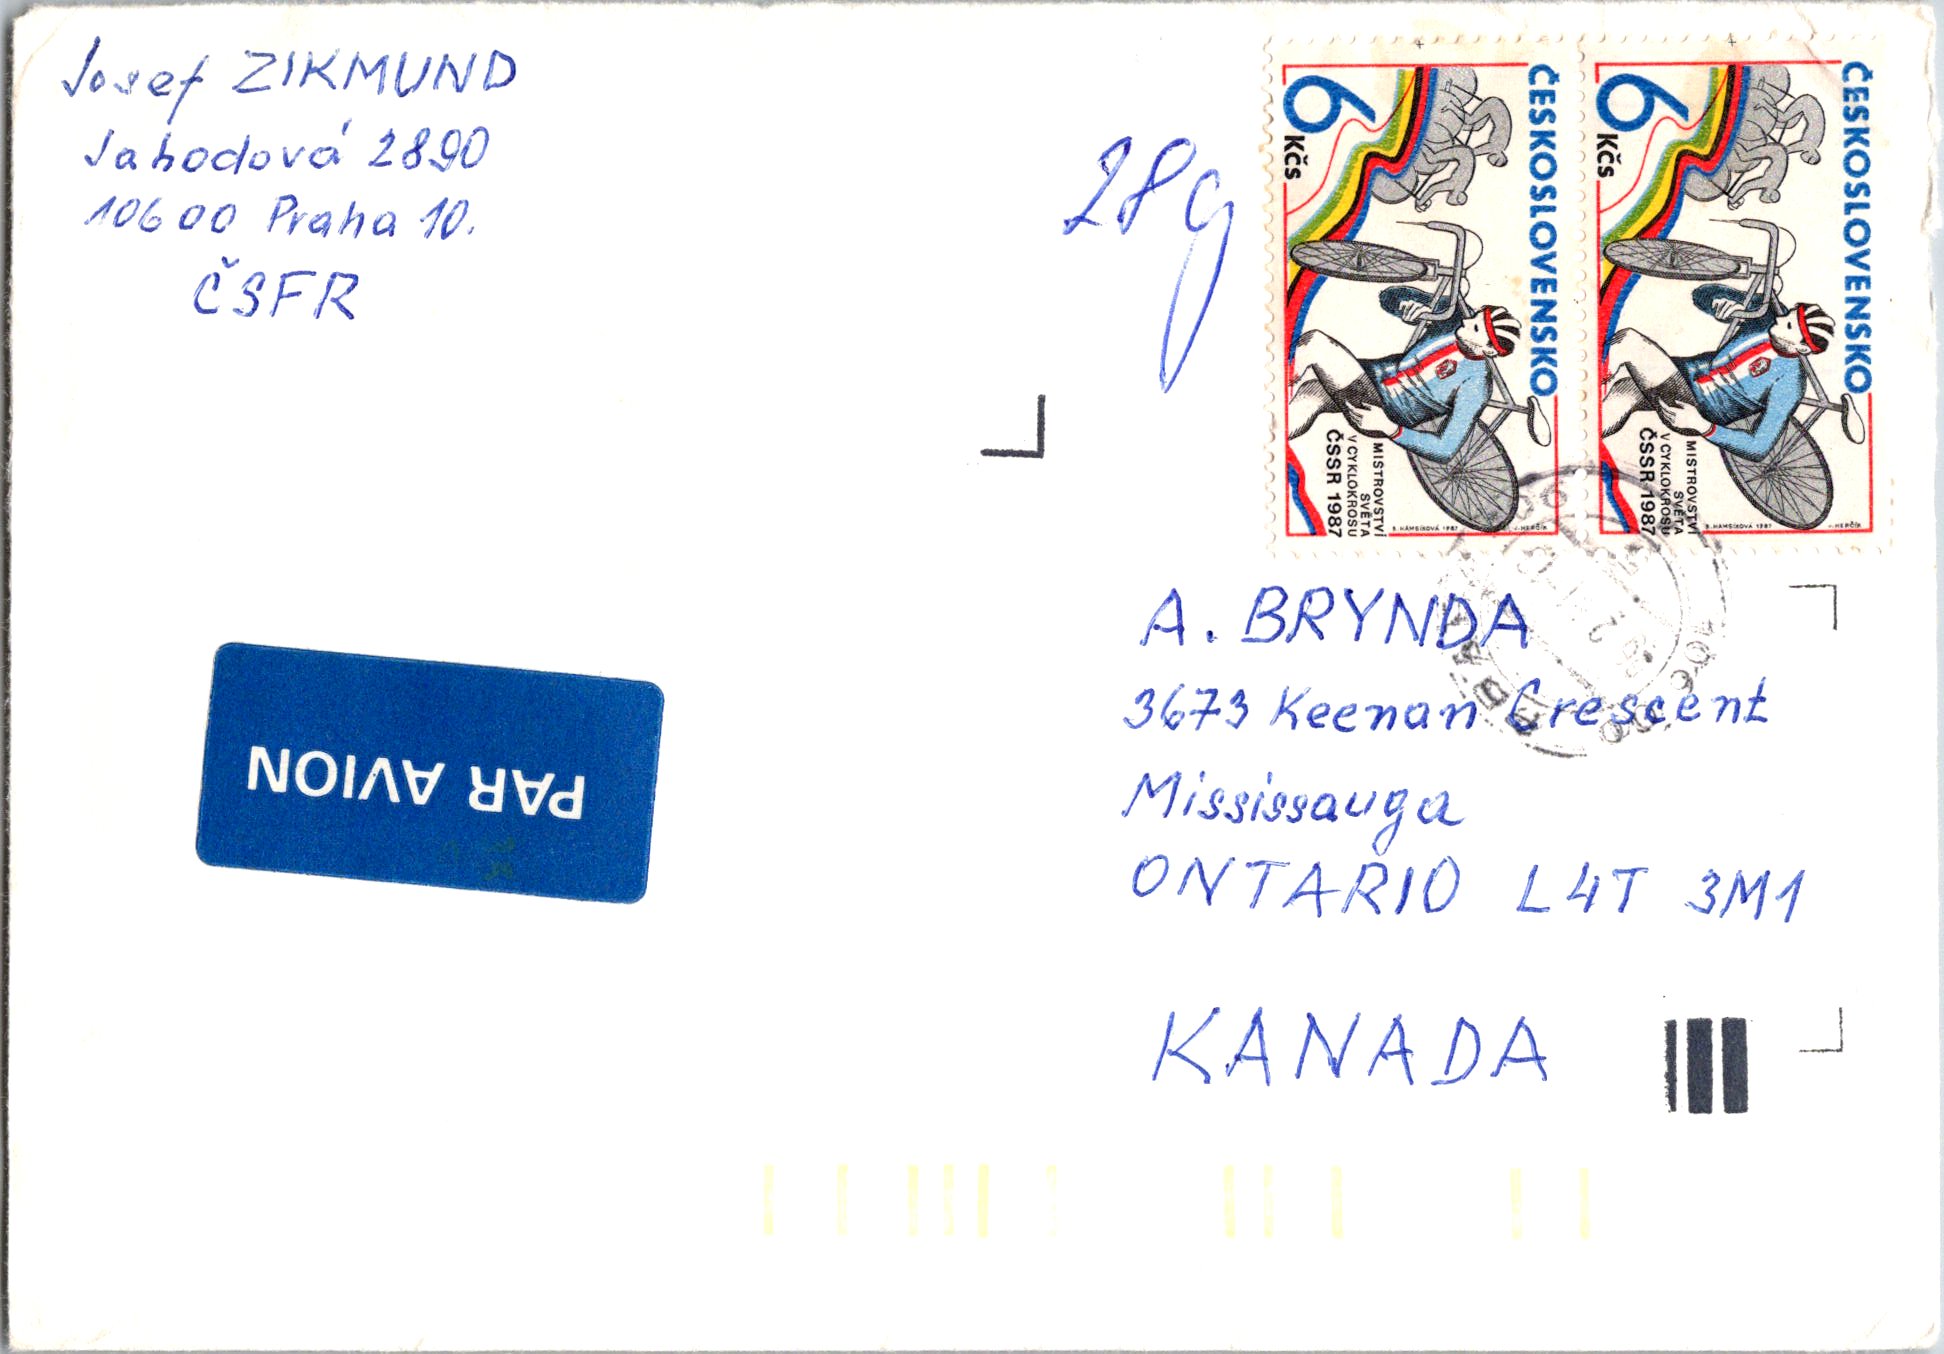 Josef ZIKMUND
Jahodová 2890
10600 Praha 10.
ČSFR
28g
6 Kčs
ČESKOSLOVENSKO
MISTROVSTVÍ
SVĚTA
V CYKLOKROSU
ČSSR 1987
6 Kčs
ČESKOSLOVENSKO
MISTROVSTVÍ
SVĚTA
V CYKLOKROSU
ČSSR 1987
PAR AVION
A. BRYNDA
3673 Keenan Crescent
Mississauga
ONTARIO L4T 3M1
KANADA